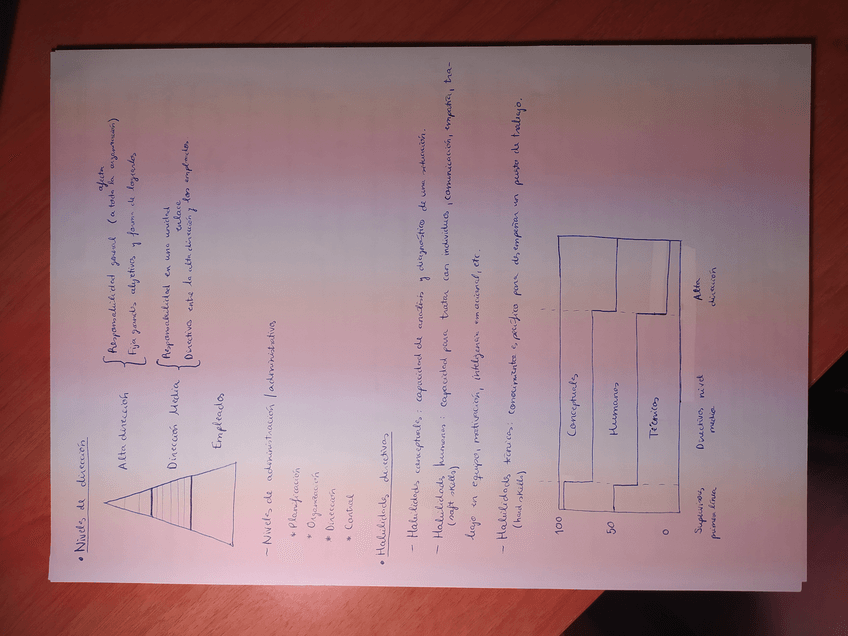 • Niveles de dirección
Alta dirección
Responsabilidad general (a toda la organización)
afecta
Fija grandes objetivos y forma de lograrlos
Dirección Media
Responsabilidad en una unidad
enlace
Directivos entre la alta dirección y los empleados
Empleados
- Niveles de administración / administrativos
* Planificación
* Organización
* Dirección
* Control
• Habilidades directivas
- Habilidades conceptuales: capacidad de análisis y diagnóstico de una situación.
- Habilidades humanas: capacidad para tratar con individuos, comunicación, empatía, tra-
(soft skills)
bajo en equipo, motivación, inteligencia emocional, etc.
- Habilidades técnicas: conocimiento específico para desempeñar un puesto de trabajo.
(hard skills)
100
Conceptuales
50
Humanas
Técnicas
0
Supervisores
primera línea
Directivos nivel
medio
Alta
dirección